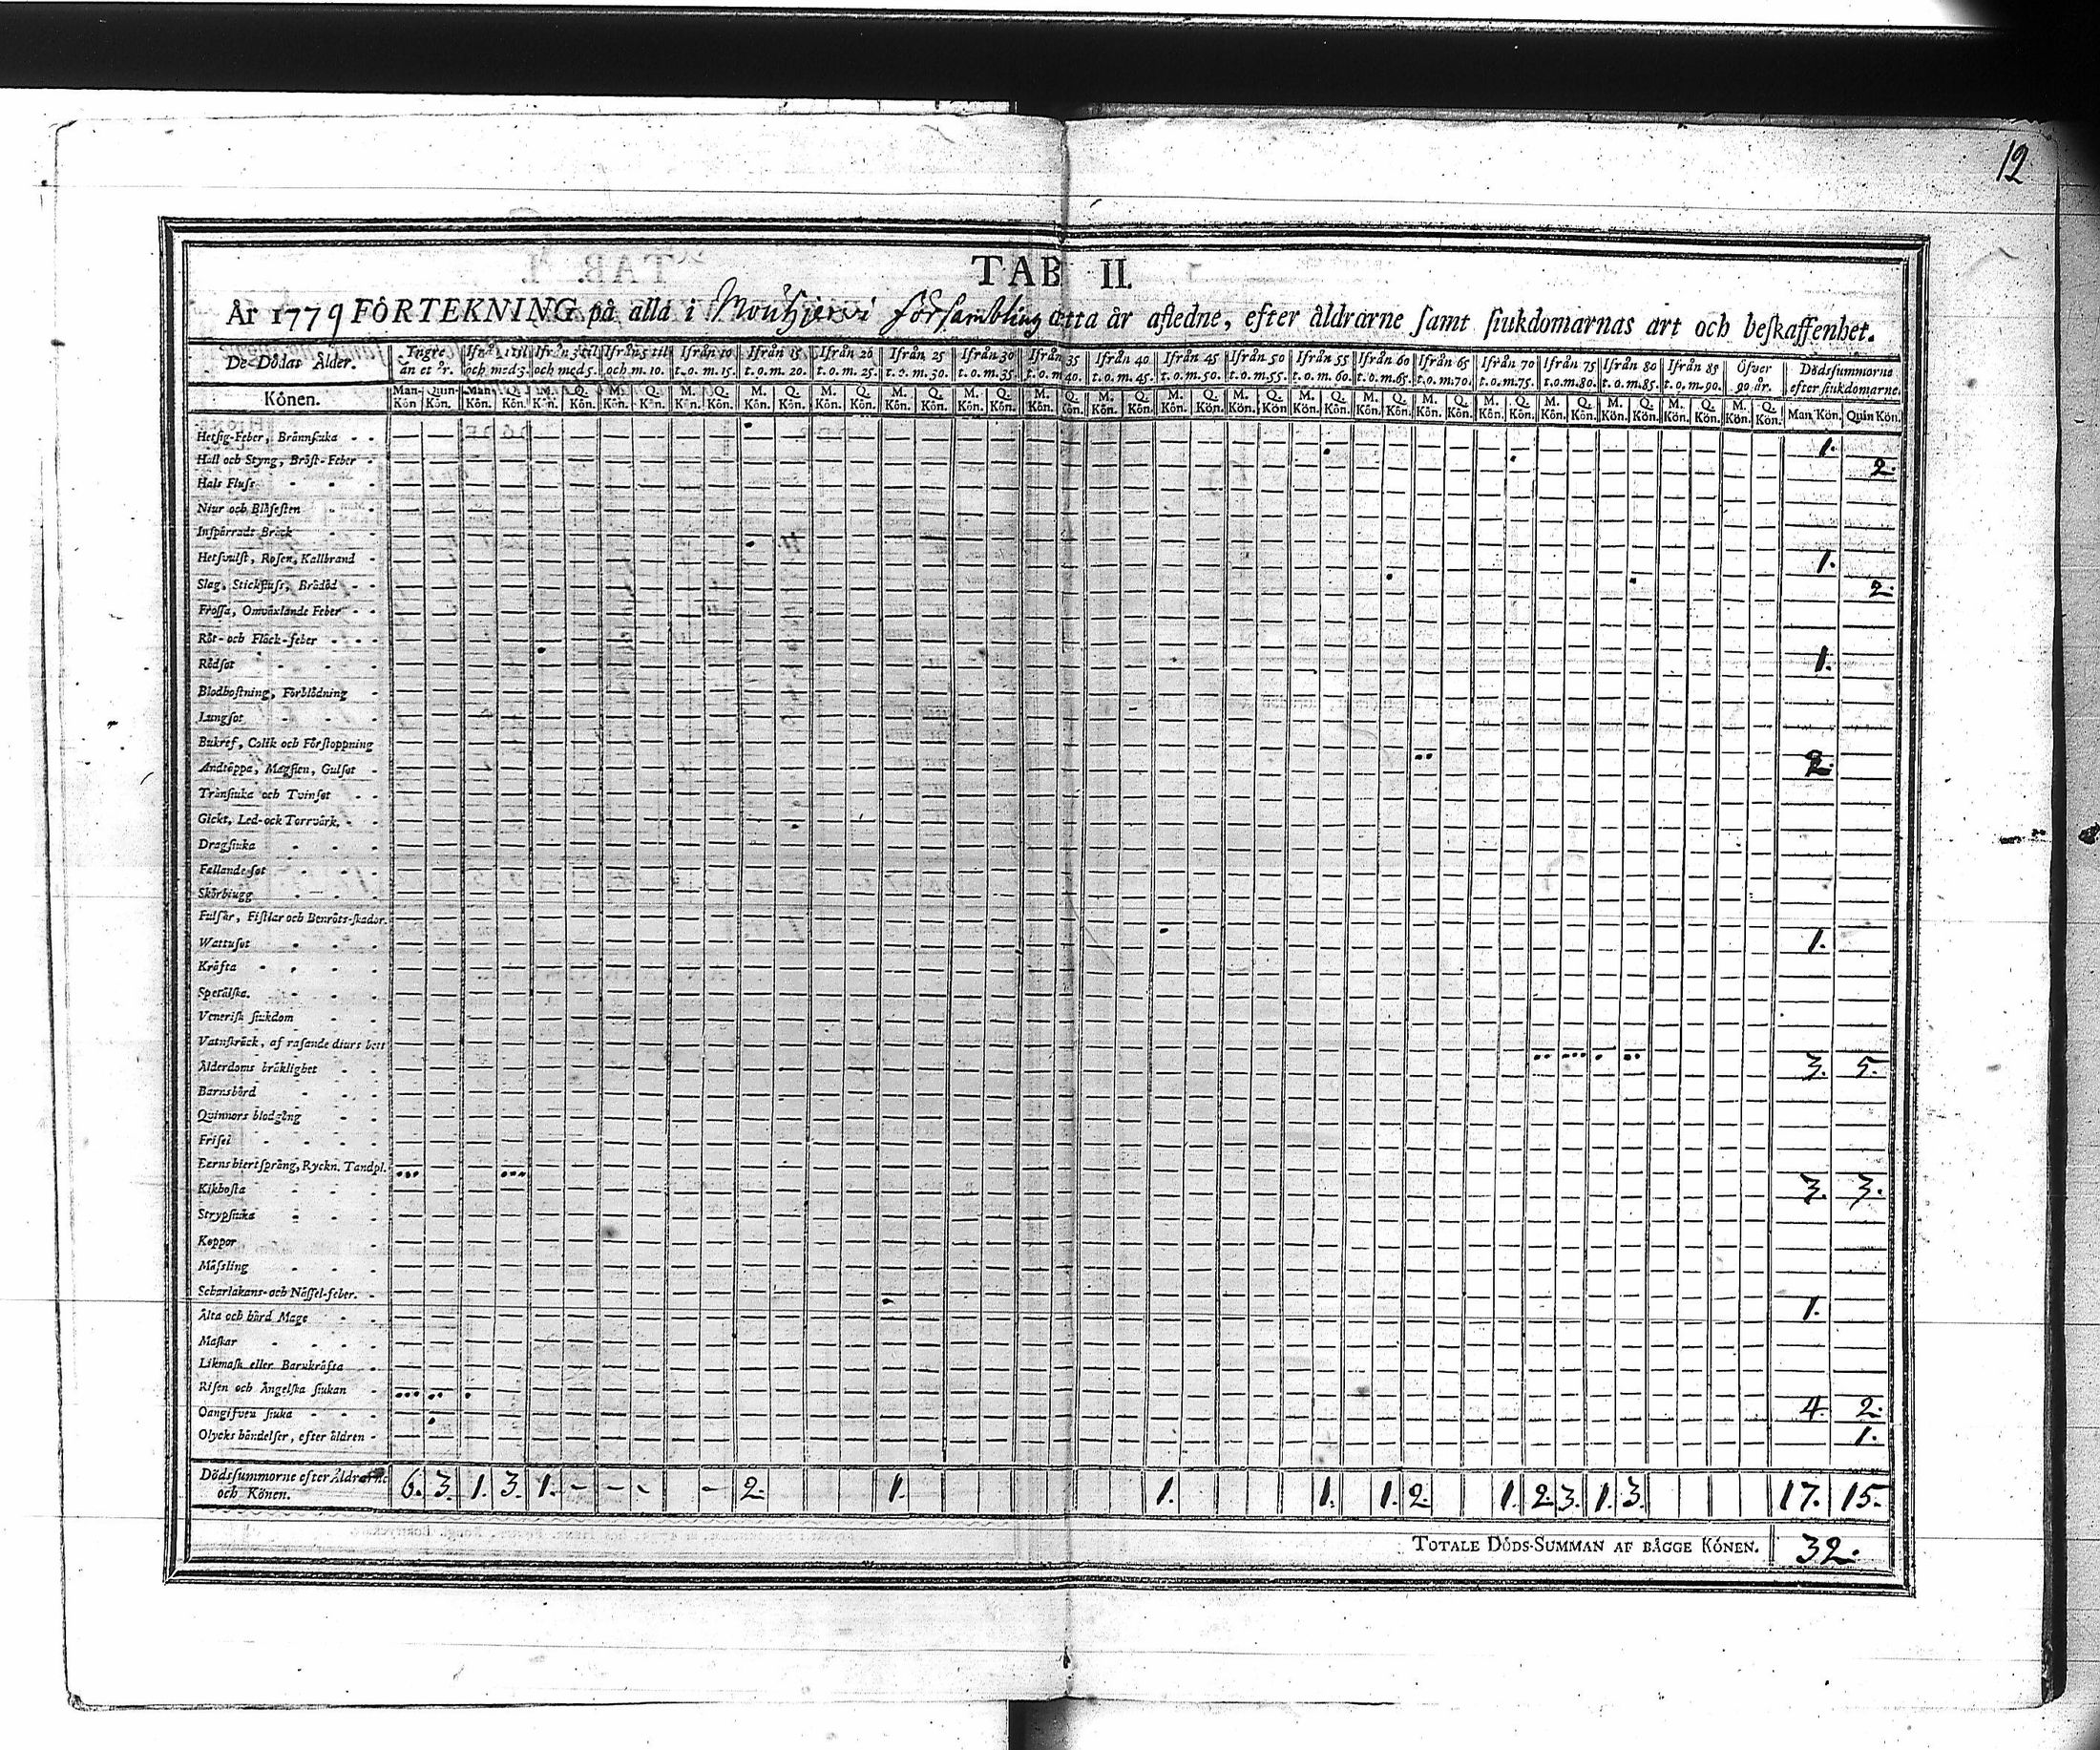 12
TAB II.
År 1779 FÖRTEKNING på alla i Mouhijervi försambling detta år afledne, efter åldrarne samt siukdomarnas art och beskaffenhet.
De Dödas Ålder. Yngre än et år. Ifrån 1 til och med 3. Ifrån 3 til och med 5. Ifrån 5 til och m. 10. Ifrån 10 t. o. m. 15. Ifrån 15 t. o. m. 20. Ifrån 20 t. o. m. 25. Ifrån 25 t. o. m. 30. Ifrån 30 t. o. m. 35. Ifrån 35 t. o. m. 40. Ifrån 40 t. o. m. 45. Ifrån 45 t. o. m. 50. Ifrån 50 t. o. m. 55. Ifrån 55 t. o. m. 60. Ifrån 60 t. o. m. 65. Ifrån 65 t. o. m. 70. Ifrån 70 t. o. m. 75. Ifrån 75 t. o. m. 80. Ifrån 80 t. o. m. 85. Ifrån 85 t. o. m. 90. Öfver 90 år. Dödssummorne efter siukdomarne.
Könen. Man-Kön Quin-Kön. Man-Kön. Q. Kön. M. Kön. Q. Kön. M. Kön. Q. Kön. M. Kön. Q. Kön. M. Kön. Q. Kön. M. Kön. Q. Kön. M. Kön. Q. Kön. M. Kön. Q. Kön. M. Kön. Q. Kön. M. Kön. Q. Kön. M. Kön. Q. Kön. M. Kön. Q. Kön. M. Kön. Q. Kön. M. Kön. Q. Kön. M. Kön. Q. Kön. M. Kön. Q. Kön. M. Kön. Q. Kön. M. Kön. Q. Kön. M. Kön. Q. Kön. M. Kön. Q. Kön. Man Kön. Quin Kön.
Hetsig-Feber, Brännsiuka - - 1.
Håll och Styng, Bröst-Feber - 2.
Hals Fluss - - -
Niur och Blåsesten - -
Inspärradt Bråck - -
Hetsvulst, Rosen, Kallbrand - 1.
Slag, Stickfluss, Brådöd - - 2.
Frossa, Omväxlande Feber - -
Röt- och Fläck-feber - - -
Rödsot - - - - 1.
Blodhostning, Förblödning -
Lungsot - - -
Bukref, Colik och Förstoppning
Andtäppa, Magsien, Gulsot - 2.
Trånsiuka och Tvinsot - -
Gickt, Led- ock Torrvärk. - -
Dragsiuka - - -
Fallande sot - - -
Skörbiugg - - -
Fulsår, Fistlar och Benröts-skador.
Wattusot - - - 1.
Kräfta - - - -
Spetälska. - - -
Venerisk siukdom - -
Vatnskräck, af rasande diurs bett
Ålderdoms bräklighet - - 3. 5.
Barnsbörd - - -
Quinnors blodgång - -
Frisel - - - -
Berns hiertsprång, Ryckn. Tandpl.
Kikhosta - - - 3. 3.
Strypsiuka - - -
Koppor - - -
Mässling - - -
Scharlakans- och Nässel-feber. -
Älta och hård Mage - - 1.
Maskar - - - -
Likmask eller Barnkräfta -
Risen och Ängelska siukan -
Oangifven siuka - - - 4. 2.
Olycks händelser, efter ålldren - 1.
Dödssummorne efter Åldrarne och Könen. 6. 3. 1. 3. 1. - - - - 2. 1. 1. 1. 1. 2. 1. 2. 3. 1. 3. 17. 15.
TOTALE DÖDS-SUMMAN AF BÄGGE KÖNEN. 32.